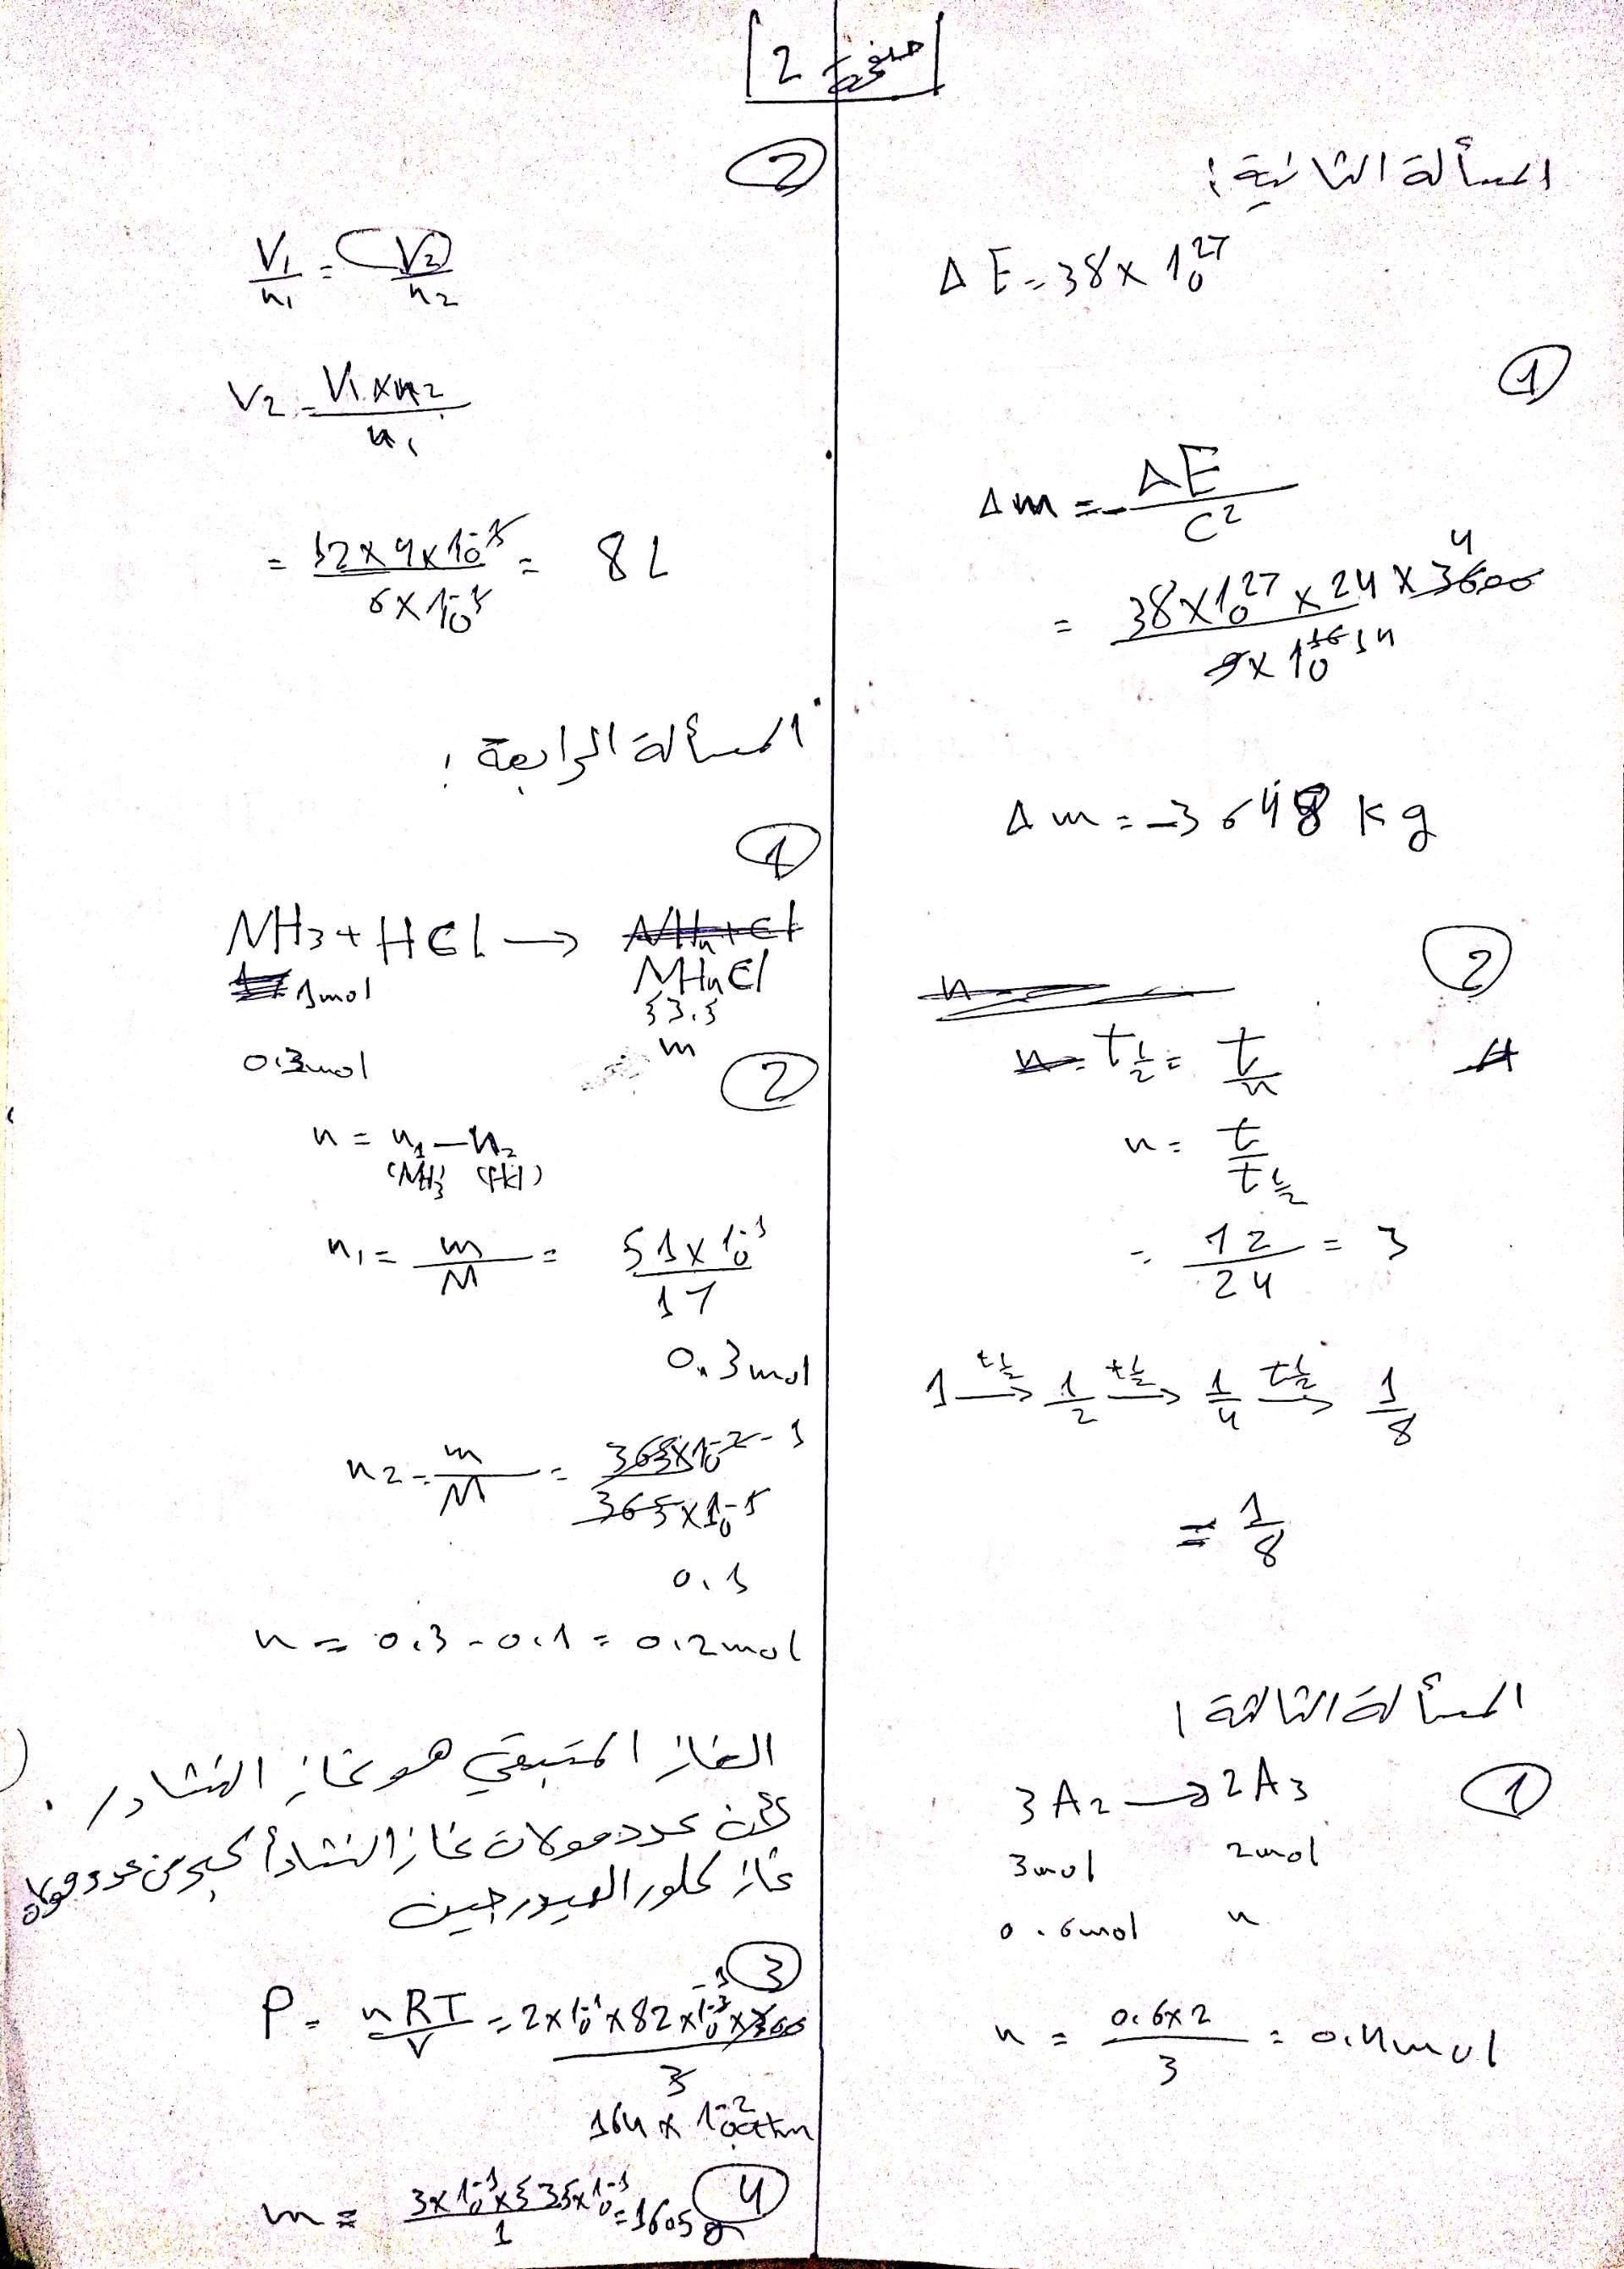 صفحة 2
المسألة الثانية:
ΔE = 38 × 10^27
①
Δm = - ΔE / C²
= 38 × 10^27 × 24 × 3600 / 9 × 10^16
4
14
Δm = -3648 kg
②
t½ = t / n
n = t / t½
= 12 / 24 = 3
1 →(t½) 1/2 →(t½) 1/4 →(t½) 1/8
= 1/8
المسألة الثالثة:
①
3A₂ → 2A₃
3mol 2mol
0.6mol n
n = 0.6×2 / 3 = 0.4mol
②
V₁ / n₁ = V₂ / n₂
V₂ = V₁ × n₂ / n₁
= 12 × 4 × 10^-1 / 6 × 10^-1 = 8 L
المسألة الرابعة:
①
NH₃ + HCl → NH₄Cl
1mol 53.5
0.3mol m
②
n = n₁ - n₂
(NH₃) (HCl)
n₁ = m / M = 51 × 10^-1 / 17
0.3mol
n₂ = m / M = 365 × 10^-2 / 365 × 10^-1
0.1
n = 0.3 - 0.1 = 0.2mol
الغاز المتبقي هو غاز النشادر.
لأن عدد مولات غاز النشادر أكبر من عدد مولات
غاز كلور الهيدروجين
③
P = nRT / V = 2 × 10^-1 × 82 × 10^-3 × 300 / 3
164 × 10^-2 atm
④
m = 3 × 10^-1 × 535 × 10^-1 / 1 = 1605 g